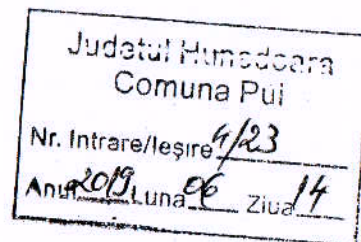 Județul Hunedoara
Comuna Pui
Nr. Intrare/Ieșire 4123
Anul 2019 Luna 06 Ziua 14